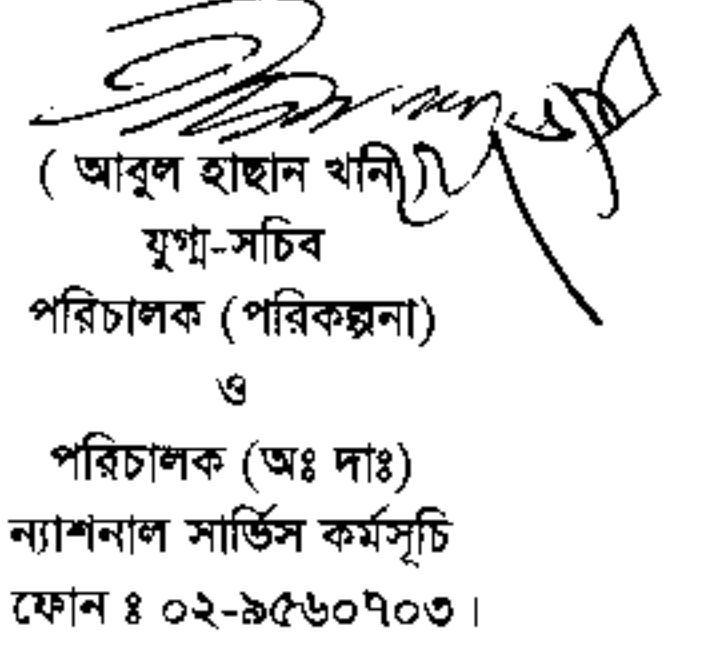 ( আবুল হাছান খান )
যুগ্ম-সচিব
পরিচালক (পরিকল্পনা)
ও
পরিচালক (অঃ দাঃ)
ন্যাশনাল সার্ভিস কর্মসূচি
ফোন ঃ ০২-৯৫৬০৭০৩।